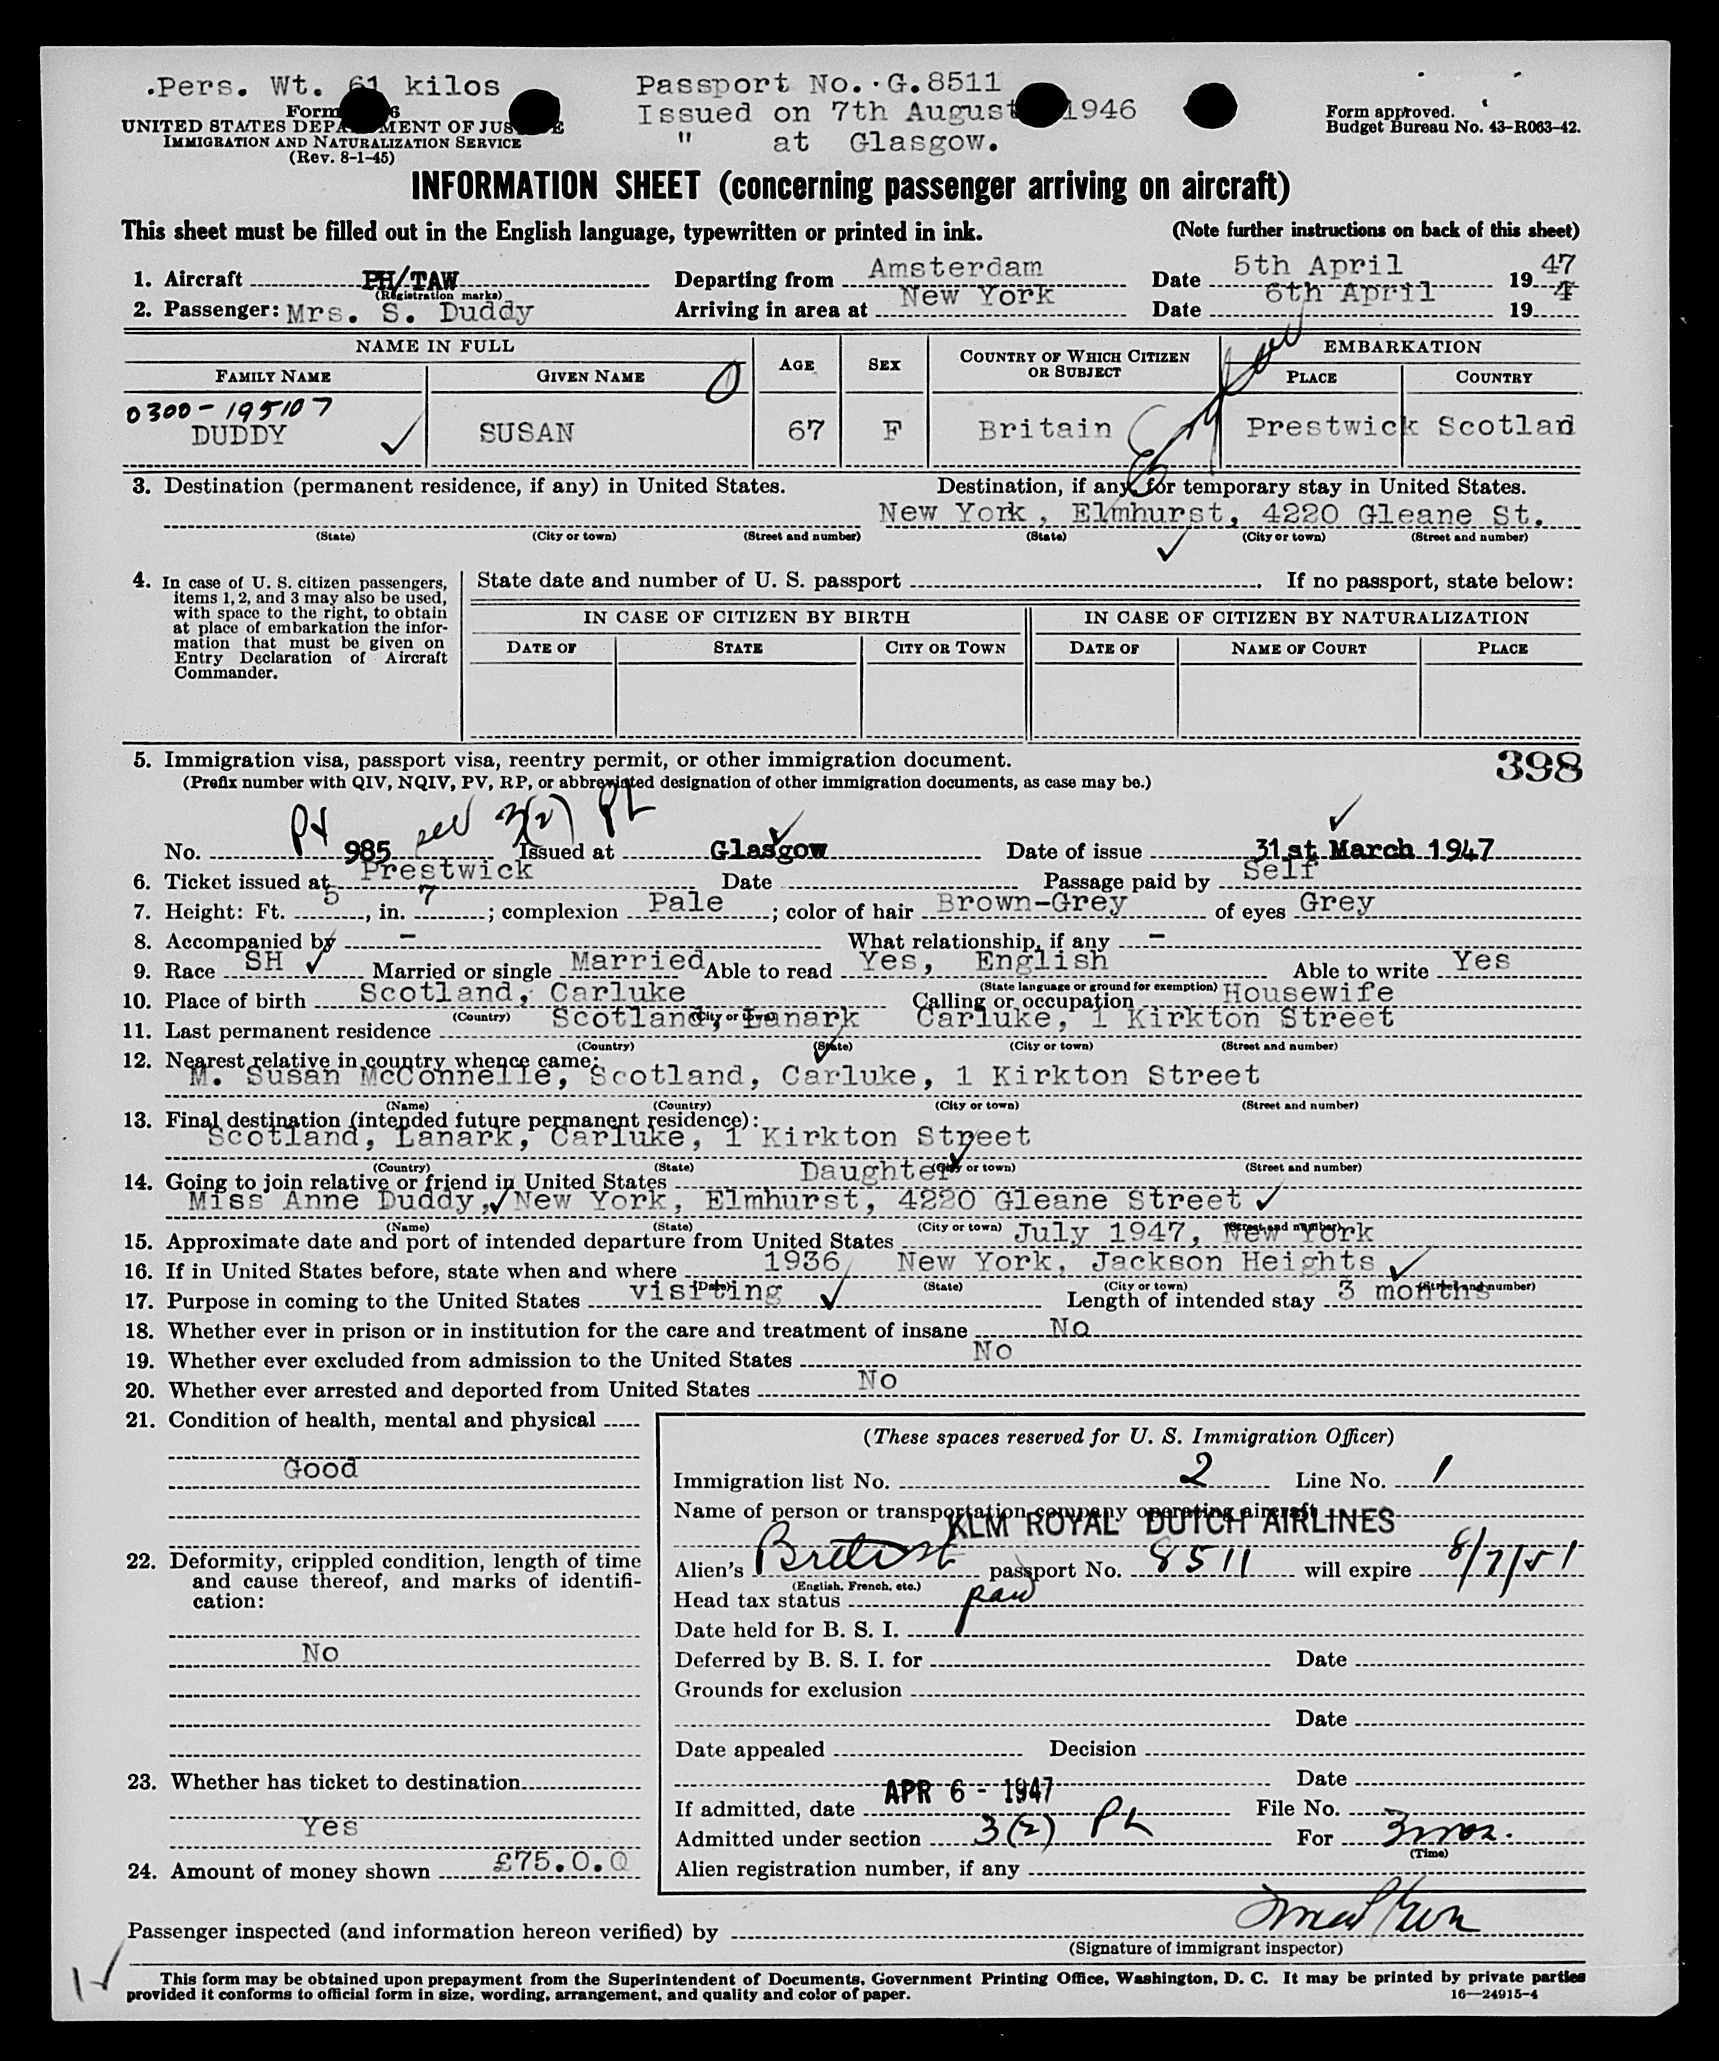 .Pers. Wt. 61 kilos Passport No. G.8511
Issued on 7th August 1946
UNITED STATES DEPARTMENT OF JUSTICE " at Glasgow. Form approved.
IMMIGRATION AND NATURALIZATION SERVICE Budget Bureau No. 43-R063-42.
(Rev. 8-1-45)
INFORMATION SHEET (concerning passenger arriving on aircraft)
This sheet must be filled out in the English language, typewritten or printed in ink. (Note further instructions on back of this sheet)
1. Aircraft PH/TAW Departing from Amsterdam Date 5th April 1947
(Registration marks)
2. Passenger: Mrs. S. Duddy Arriving in area at New York Date 6th April 194
NAME IN FULL AGE SEX COUNTRY OF WHICH CITIZEN OR SUBJECT EMBARKATION
FAMILY NAME GIVEN NAME PLACE COUNTRY
0300-195107
DUDDY SUSAN 67 F Britain Prestwick Scotland
3. Destination (permanent residence, if any) in United States. Destination, if any, for temporary stay in United States.
New York, Elmhurst, 4220 Gleane St.
(State) (City or town) (Street and number) (State) (City or town) (Street and number)
4. In case of U. S. citizen passengers, items 1, 2, and 3 may also be used, with space to the right, to obtain at place of embarkation the information that must be given on Entry Declaration of Aircraft Commander.
State date and number of U. S. passport If no passport, state below:
IN CASE OF CITIZEN BY BIRTH IN CASE OF CITIZEN BY NATURALIZATION
DATE OF STATE CITY OR TOWN DATE OF NAME OF COURT PLACE
5. Immigration visa, passport visa, reentry permit, or other immigration document. 398
(Prefix number with QIV, NQIV, PV, RP, or abbreviated designation of other immigration documents, as case may be.)
PV 3(2) PL
No. 985 Issued at Glasgow Date of issue 31st March 1947
6. Ticket issued at Prestwick Date Passage paid by Self
7. Height: Ft. 5, in. 7; complexion Pale; color of hair Brown-Grey of eyes Grey
8. Accompanied by - What relationship, if any -
9. Race SH Married or single Married Able to read Yes, English Able to write Yes
(State language or ground for exemption)
10. Place of birth Scotland, Carluke Calling or occupation Housewife
(Country) (City or town)
11. Last permanent residence Scotland, Lanark Carluke, 1 Kirkton Street
(Country) (State) (City or town) (Street and number)
12. Nearest relative in country whence came:
M. Susan McConnelle, Scotland, Carluke, 1 Kirkton Street
(Name) (Country) (City or town) (Street and number)
13. Final destination (intended future permanent residence):
Scotland, Lanark, Carluke, 1 Kirkton Street
(Country) (State) (City or town) (Street and number)
14. Going to join relative or friend in United States Daughter
Miss Anne Duddy, New York, Elmhurst, 4220 Gleane Street
(Name) (State) (City or town) (Street and number)
15. Approximate date and port of intended departure from United States July 1947, New York
16. If in United States before, state when and where 1936 New York, Jackson Heights
(Date) (State) (City or town) (Street and number)
17. Purpose in coming to the United States visiting Length of intended stay 3 months
18. Whether ever in prison or in institution for the care and treatment of insane No
19. Whether ever excluded from admission to the United States No
20. Whether ever arrested and deported from United States No
21. Condition of health, mental and physical
Good
22. Deformity, crippled condition, length of time
and cause thereof, and marks of identifi-
cation:
No
23. Whether has ticket to destination
Yes
24. Amount of money shown £75.0.0
(These spaces reserved for U. S. Immigration Officer)
Immigration list No. 2 Line No. 1
Name of person or transportation company operating aircraft
KLM ROYAL DUTCH AIRLINES
Alien's British passport No. 8511 will expire 8/7/51
(English, French, etc.)
Head tax status paid
Date held for B. S. I.
Deferred by B. S. I. for Date
Grounds for exclusion
Date
Date appealed Decision
Date
If admitted, date APR 6 - 1947 File No.
Admitted under section 3(2) PL For 3 mos.
(Time)
Alien registration number, if any
Passenger inspected (and information hereon verified) by
(Signature of immigrant inspector)
This form may be obtained upon prepayment from the Superintendent of Documents, Government Printing Office, Washington, D. C. It may be printed by private parties
provided it conforms to official form in size, wording, arrangement, and quality and color of paper. 16—24915-4